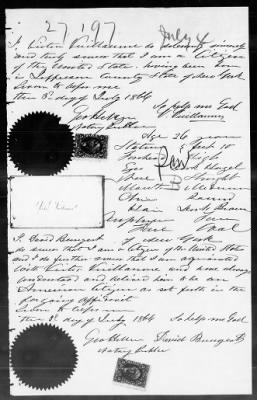 27197 July 4
I, Victor Guillaume do solemnly sincerely
and truly swear that I am a Citizen
of the United States, having been born
in Jefferson County State of New York
Sworn to before me
this 8th day of July 1864
So help me God
V Guillaume
Geo
Notary Public
Age 26 years
Stature 5 feet 10
Forehead High
Eyes Hazel
Nose Straight
Mouth Medium
Chin Round
Hair Dark Brown
Complexion
Face Oval
I, David
New York
do swear that I am a Citizen of the United States
and I do further swear that I am acquainted
with Victor Guillaume and have always
understood and believed him to be an
American Citizen as set forth in the
forgoing affidavit
Sworn to before me
this 8th day of July 1864 So help me God
Geo David
Notary Public